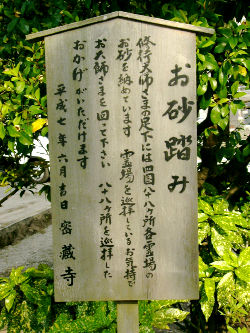 お砂踏み
修行大師さまの足下には四国八十八ヶ所各霊場の
お砂を納めています 霊場を巡拝しているお気持で
お大師さまを回って下さい 八十八ヶ所を巡拝した
おかげがいただけます
平成七年六月吉日 密蔵寺